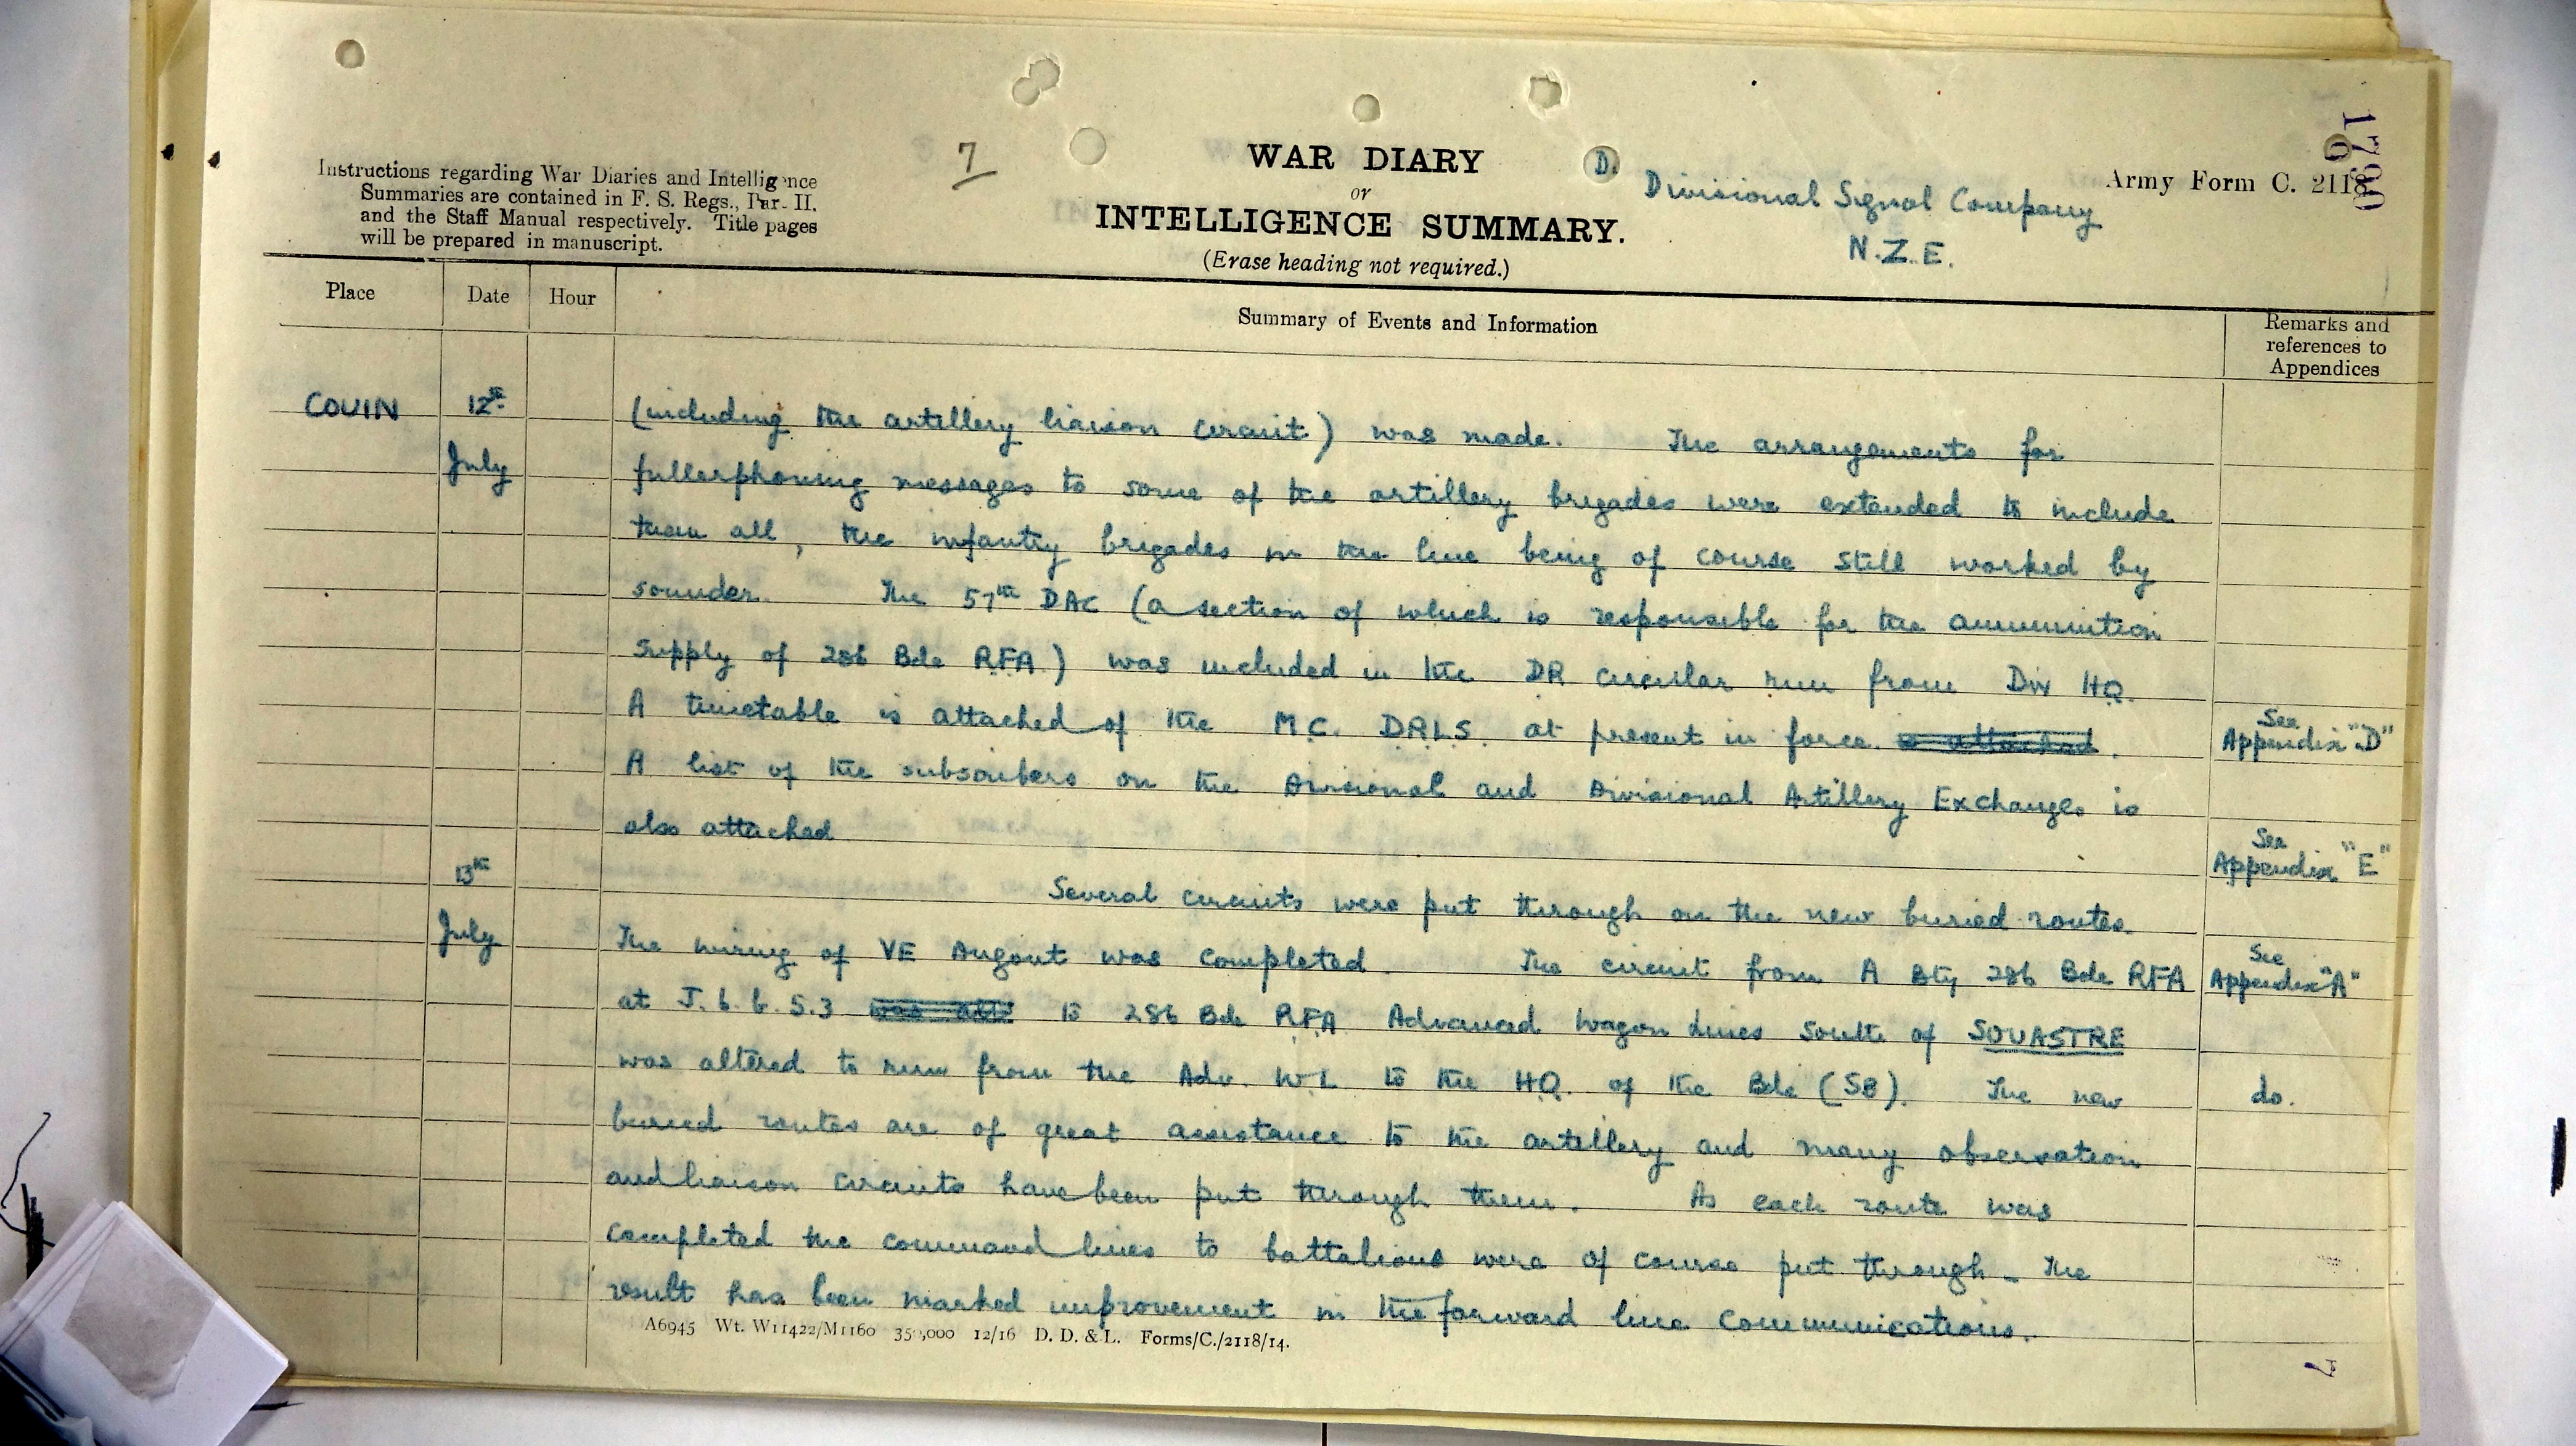 1790
6
7
WAR DIARY
or
INTELLIGENCE SUMMARY.
(Erase heading not required.)
Instructions regarding War Diaries and Intelligence
Summaries are contained in F. S. Regs., Par. II.
and the Staff Manual respectively. Title pages
will be prepared in manuscript.
D.
Divisional Signal Company
N.Z.E.
Army Form C. 2118
Place Date Hour Summary of Events and Information Remarks and
references to
Appendices
COUIN 12th (including the artillery liaison circuit) was made. The arrangements for
July fullerphoning messages to some of the artillery brigades were extended to include
them all, the infantry brigades in the line being of course still worked by
sounder. The 57th DAC (a section of which is responsible for the ammunition
supply of 286 Bde RFA) was included in the DR circular run from Div HQ.
A timetable is attached of the M.C. D.R.L.S. at present in force is attached. See
Appendix "D"
A list of the subscribers on the Divisional and Divisional Artillery Exchanges is
also attached See
Appendix "E"
13th Several circuits were put through on the new buried routes
July The wiring of VE Dugout was completed. The circuit from A Bty 286 Bde RFA See
Appendix "A"
at J.6.b.5.3 to 286 Bde RFA Advanced Wagon Lines South of SOUASTRE
was altered to run from the Adv. W.L to the HQ. of the Bde (SB). The new do.
buried routes are of great assistance to the artillery and many observation
and liaison circuits have been put through them. As each route was
completed the command lines to battalions were of course put through - The
result has been marked improvement in the forward line communications.
A6945 Wt. W11422/M1160 350,000 12/16 D. D. & L. Forms/C./2118/14.
7